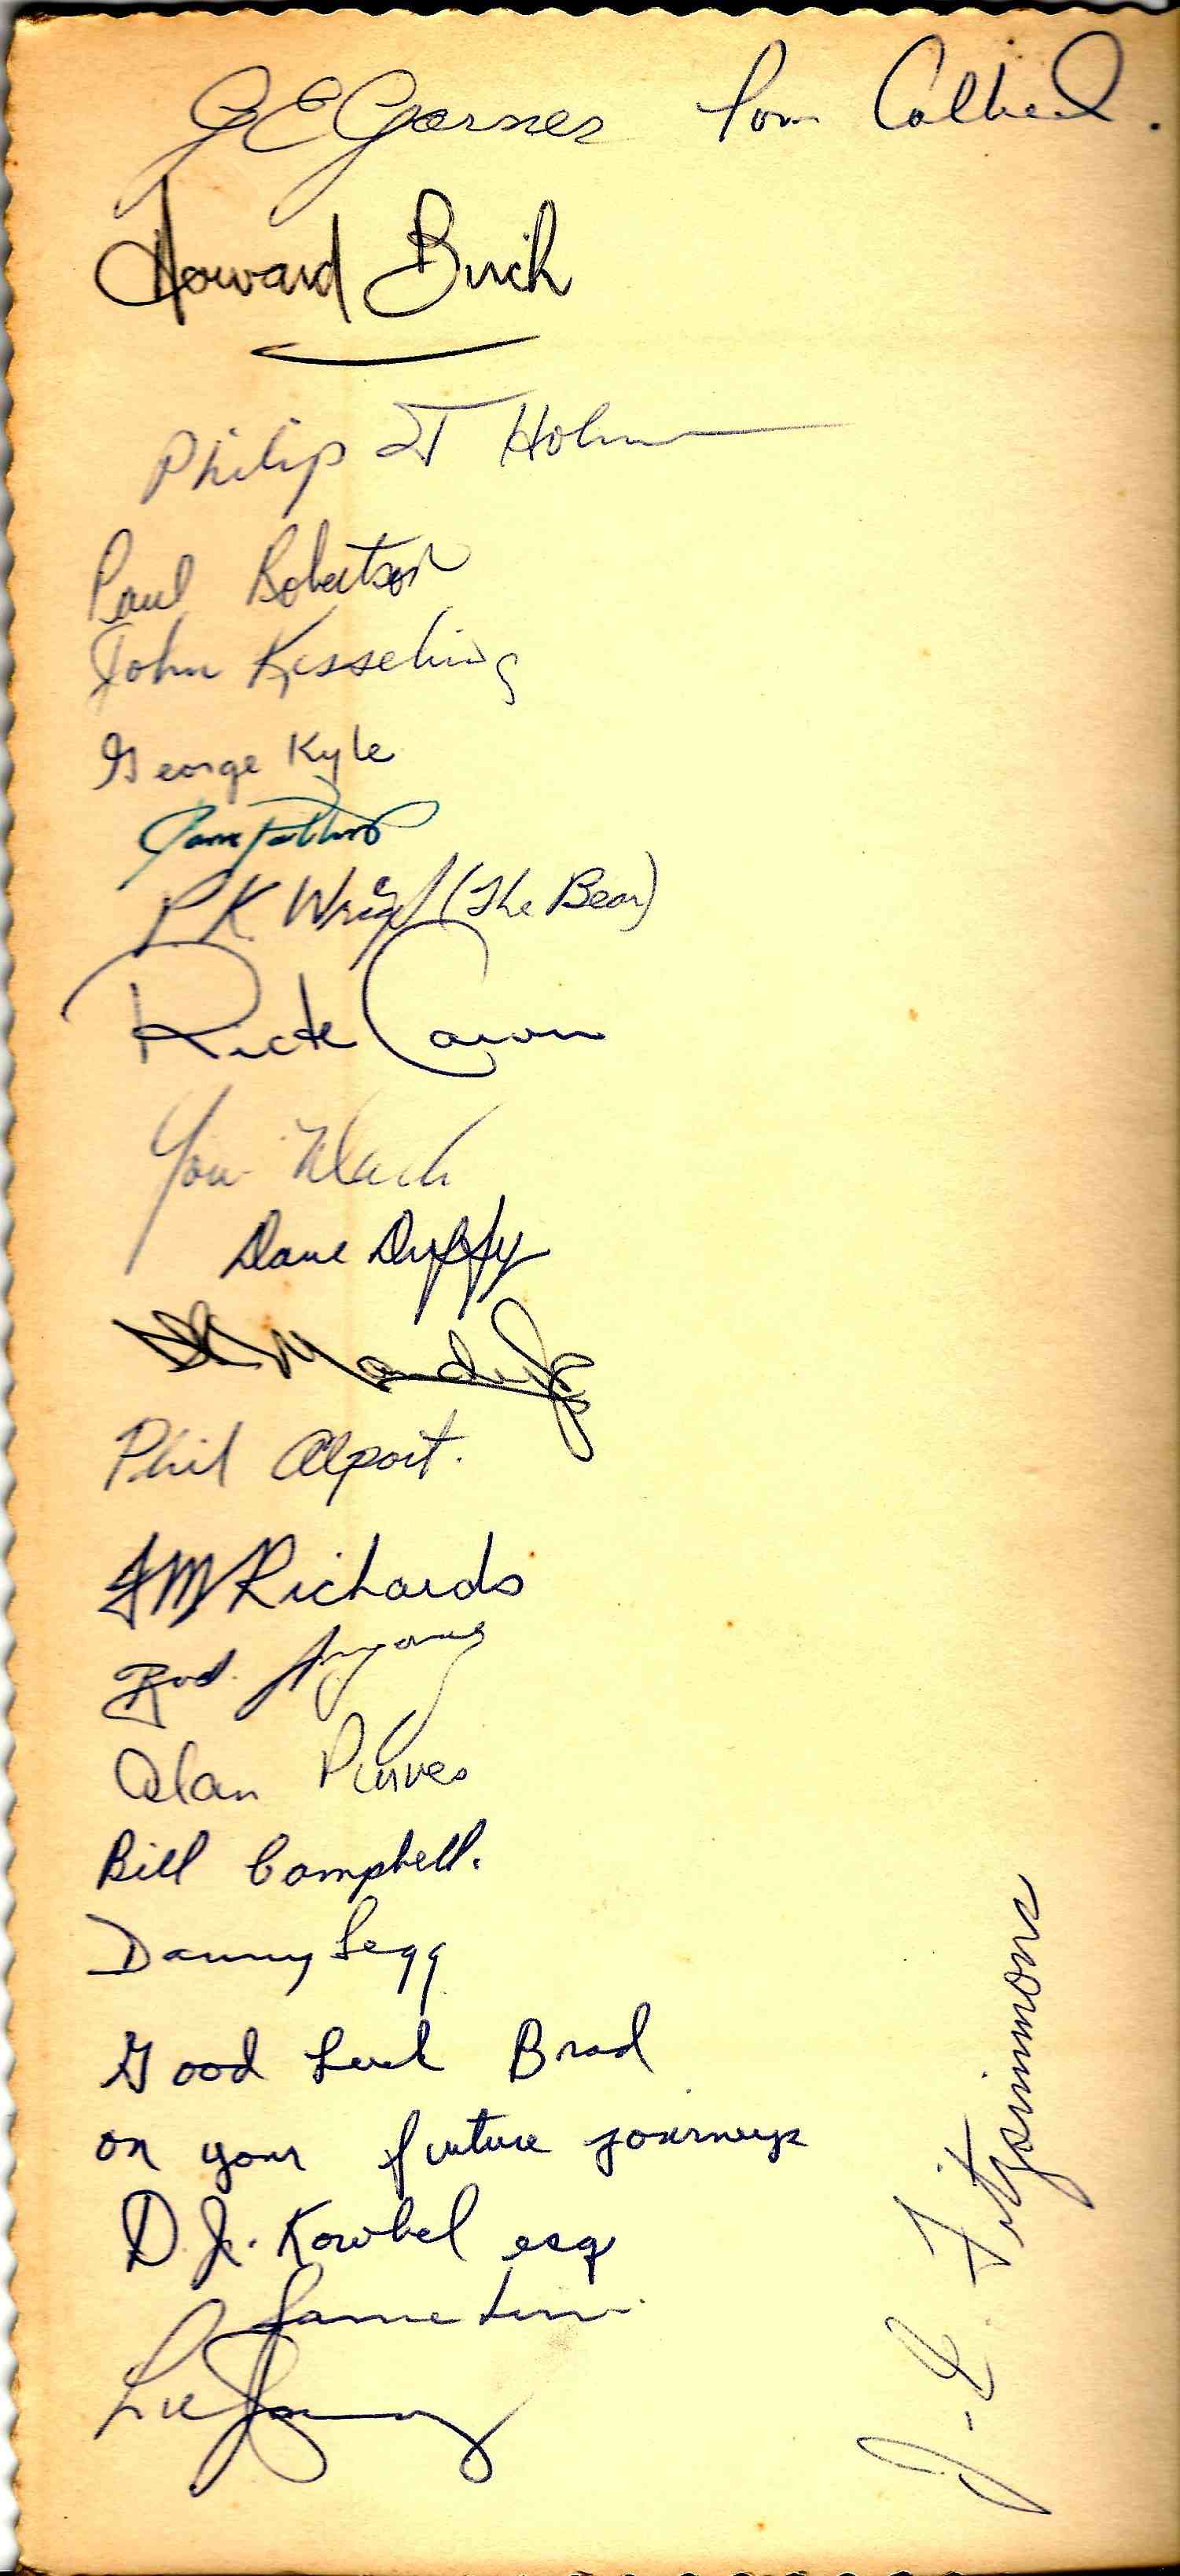 G E Garner Tom
Howard Birch
Philip J Holm
Paul Robertson
John Kesseling
George Kyle
P.K. Wright (The Bear)
Rick
You
Dave Duffy
Phil Alport.
J M Richards
Rod.
Alan Purves
Bill Campbell.
Danny Legg
Good Luck Brad
on your future journeys
D. Jr. Kowbel esq
J-E. Fitzsimmons